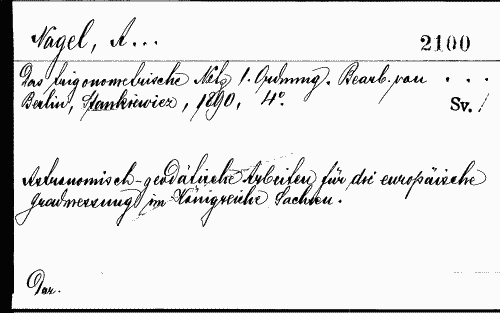 Nagel, A...
2100
Das trigonometrische Netz 1. Ordnung. Bearb. von . . .
Berlin, Stankiewicz, 1890. 4°.
Sv. /
Astronomisch-geodätische Arbeiten für die europäische
Gradmessung im Königreiche Sachsen.
Dar.